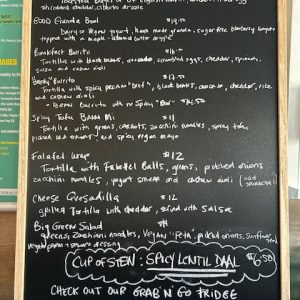 shredded cheddar, cilantro
GOOD Granola Bowl $13.50
Dairy or Vegan yogurt, house made granola, sugar free blueberry compote
topped with a maple almond butter
Breakfast Burrito $16
Tortilla with black beans, scrambled egg, cheddar, spinach,
salsa and cashew aioli
"Beefy" Burrito $17.50
Tortilla with spicy pecan "beef", black beans, cheddar, rice
and cashew aioli
Spicy Tofu Bahn Mi $11
Tortilla with greens, carrots, zucchini noodles, spicy tofu,
pickled onions and spicy vegan mayo
Falafel Wrap $12
Tortilla with Falafel Balls, greens, pickled onions
zucchini noodles, yogurt sauce and cashew aioli
Cheese Quesadilla $12
grilled Tortilla with cheddar, served with salsa
Big Green Salad
greens, zucchini noodles, vegan "Feta", pickled onions, sunflower
dressing
CUP OF STEW: SPICY LENTIL DAAL $6.50
CHECK OUT OUR GRAB N GO FRIDGE